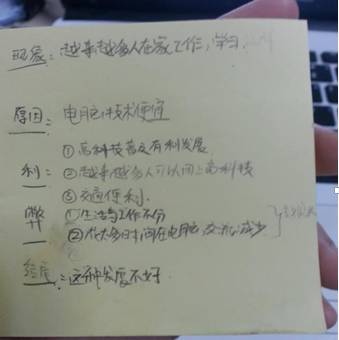 现象：越来越多人在家工作，学习
原因：电脑技术便宜
①高科技普及有利发展
利：②越来越多人可以用上高科技
③交通便利
弊 ①生活与工作不分
②花太多时间在电脑 交流减少
结尾：这种发展不好